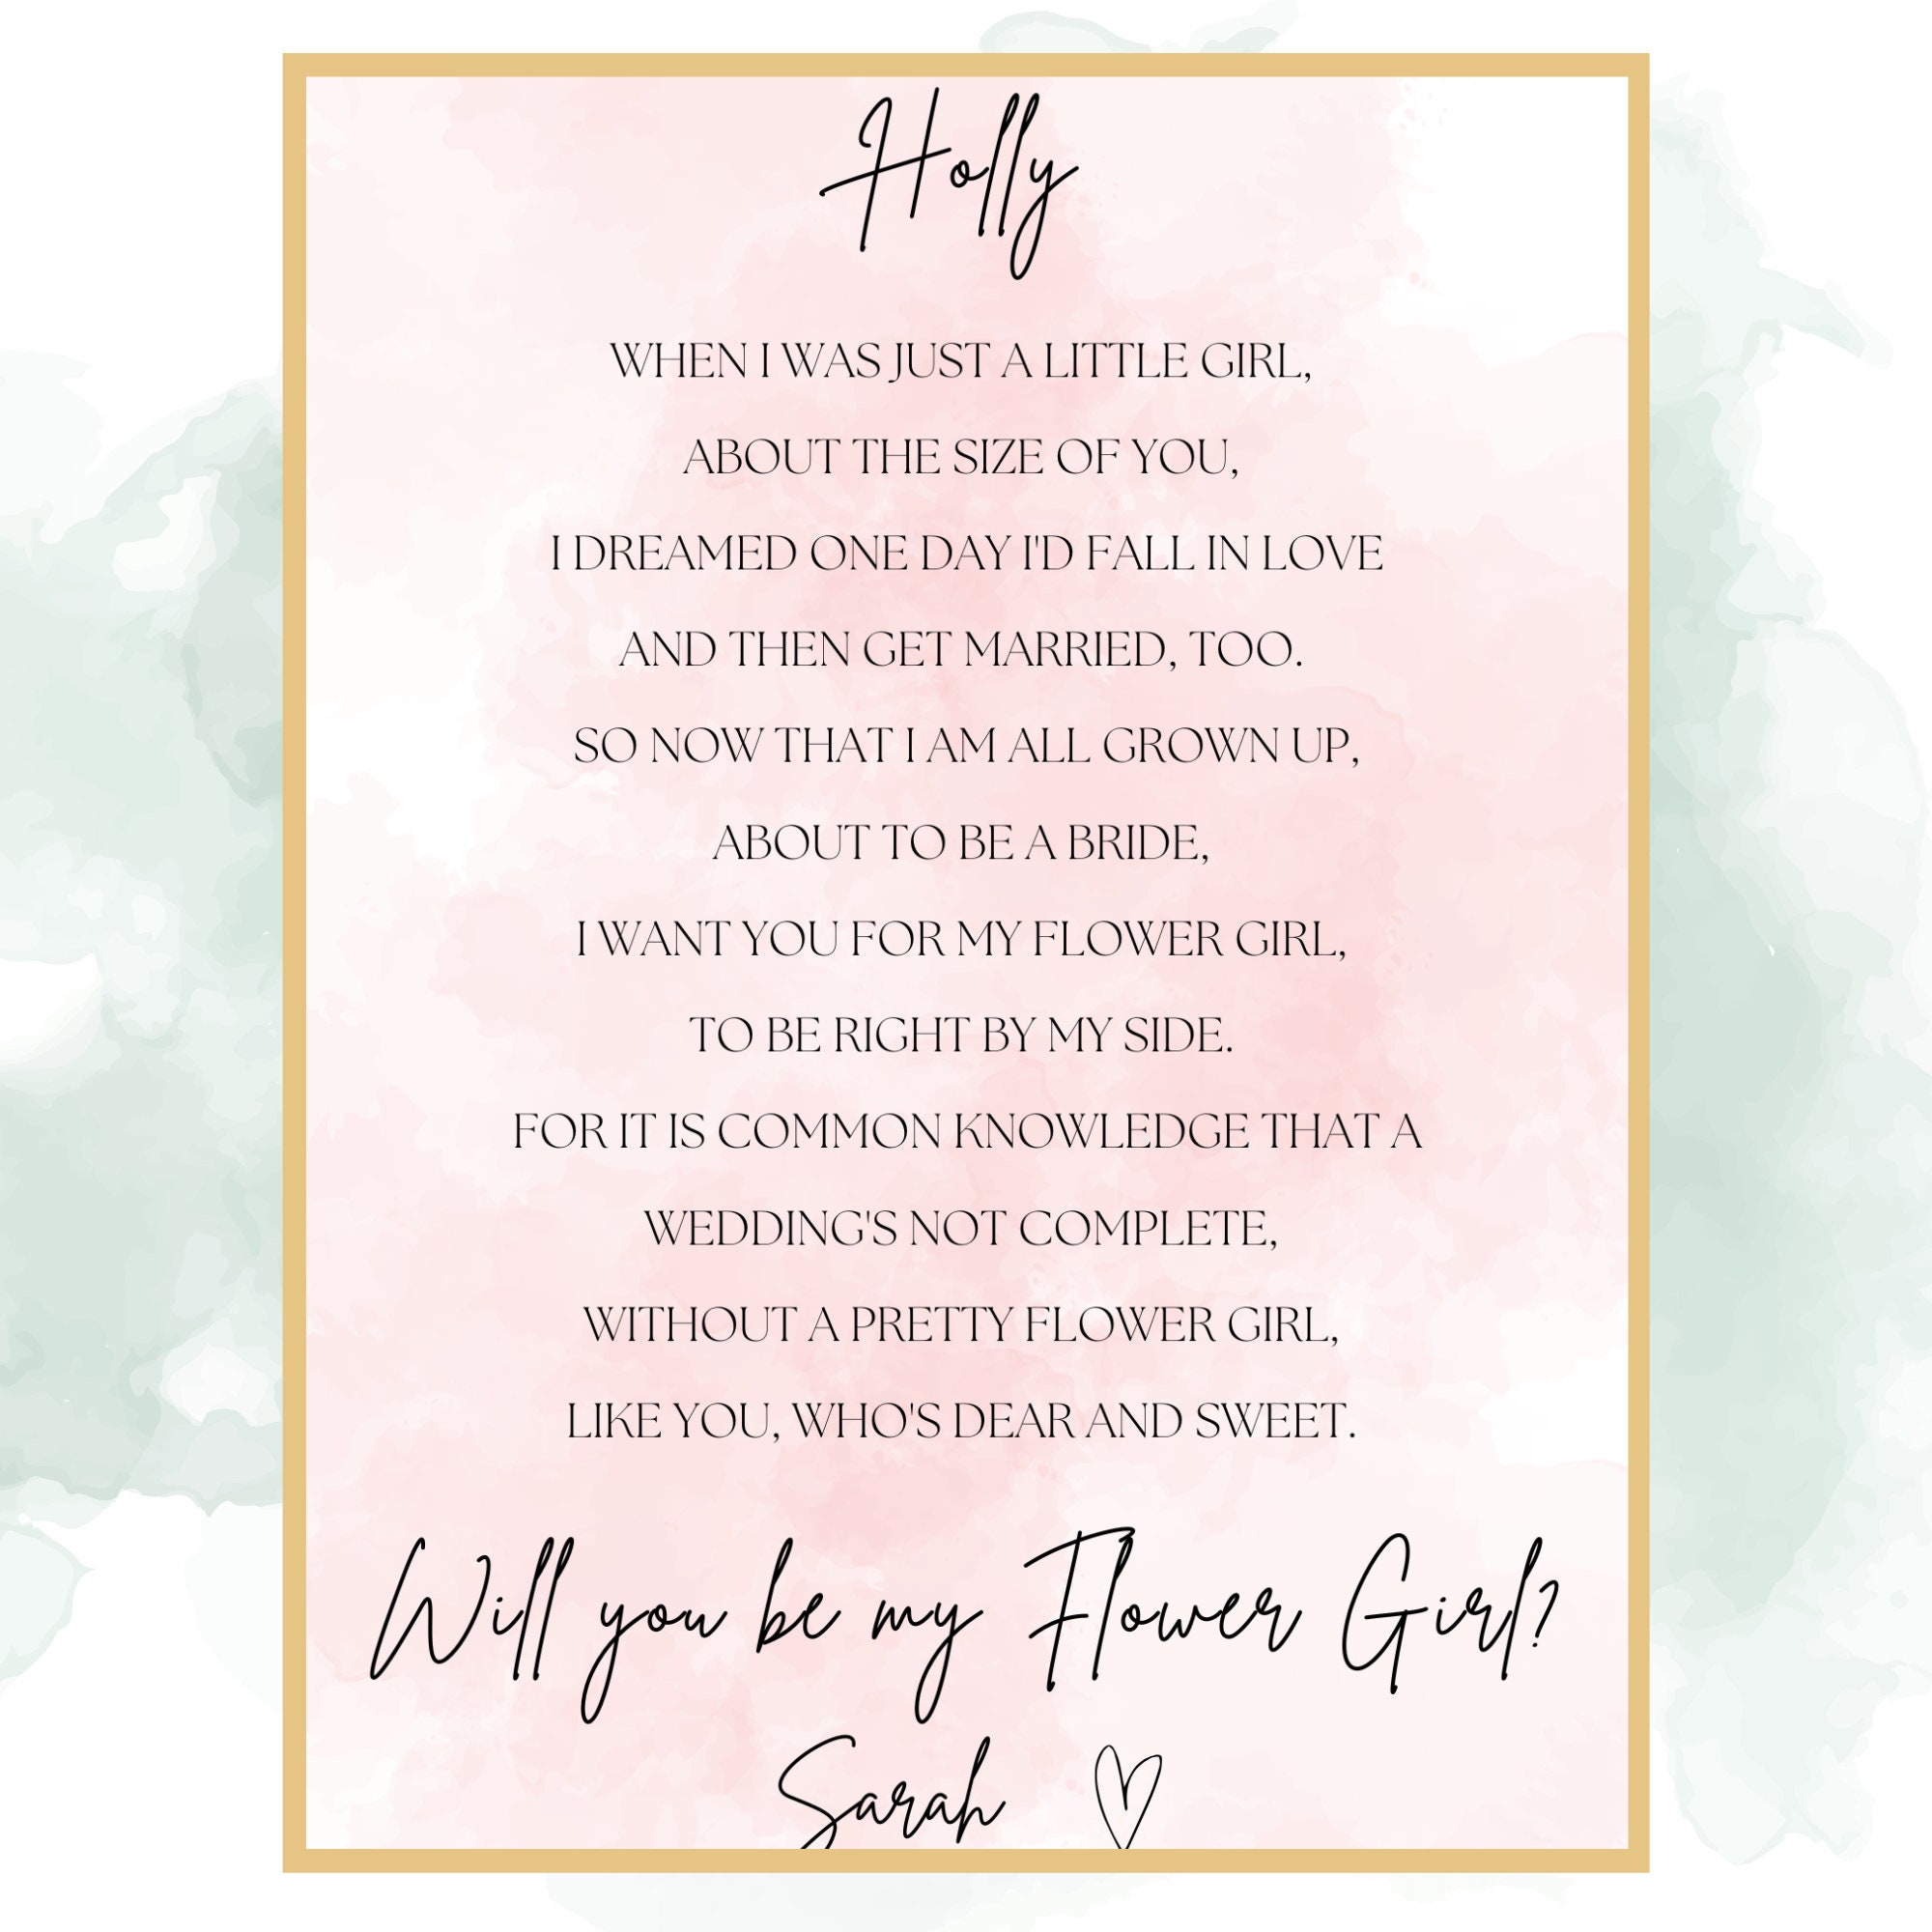 Holly
WHEN I WAS JUST A LITTLE GIRL,
ABOUT THE SIZE OF YOU,
I DREAMED ONE DAY I'D FALL IN LOVE
AND THEN GET MARRIED, TOO.
SO NOW THAT I AM ALL GROWN UP,
ABOUT TO BE A BRIDE,
I WANT YOU FOR MY FLOWER GIRL,
TO BE RIGHT BY MY SIDE.
FOR IT IS COMMON KNOWLEDGE THAT A
WEDDING'S NOT COMPLETE,
WITHOUT A PRETTY FLOWER GIRL,
LIKE YOU, WHO'S DEAR AND SWEET.
Will you be my Flower Girl?
Sarah